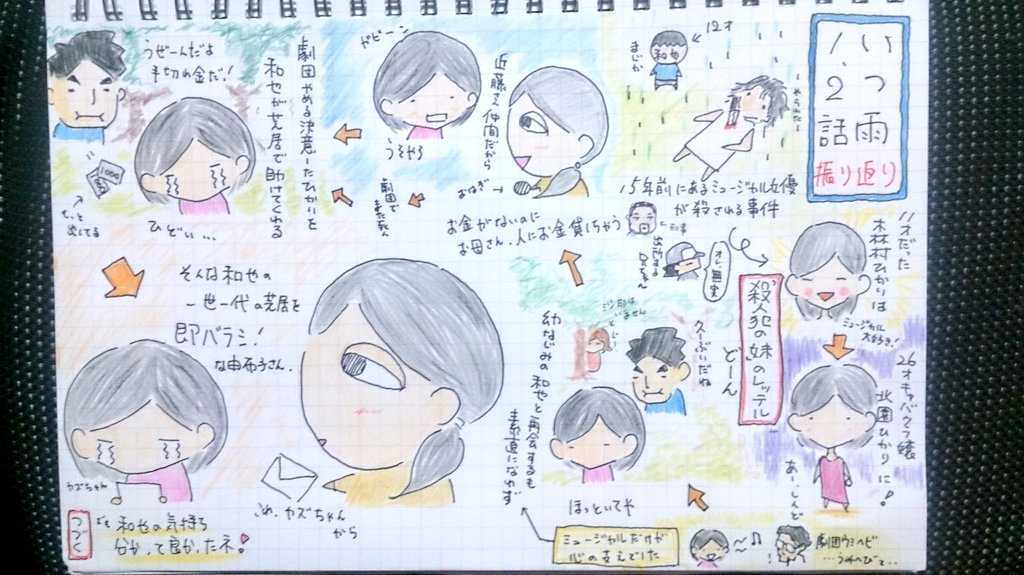 いつ雨
1、2話
振り返り
11才だった
木村ひかりは
ミュージカル
大好き!
26才キャバクラ嬢
北園ひかりに!
あーしんど
12才
和也
まじか
やられたー
15年前にあるミュージカル女優
が殺される事件
刑事
出頭する
兄ちゃん
オレ無実
殺人犯の妹のレッテル
どーん
劇団ウミヘビ
…うみへびと…
ミュージカルだけが
心の支えでした
久しぶりだね
幼なじみの和也と再会するも
素直になれず
ほっといてや
お金がないのに
お母さん、人にお金貸しちゃう
近藤さん仲間だから
おねぎ
ガビーン
うそやろ
劇団で
また死人
劇団やめる決意したひかりを
和也が芝居で助けてくれる
うぜーんだよ
手切の金だ!
1000
もっと
出してる
ひどい…
そんな和也の
一世一代の芝居を
即バラシ!
な由布子さん。
これ、カズちゃん
から
カズちゃん
でも和也の気持ち
分かって良かったネ!
つづく